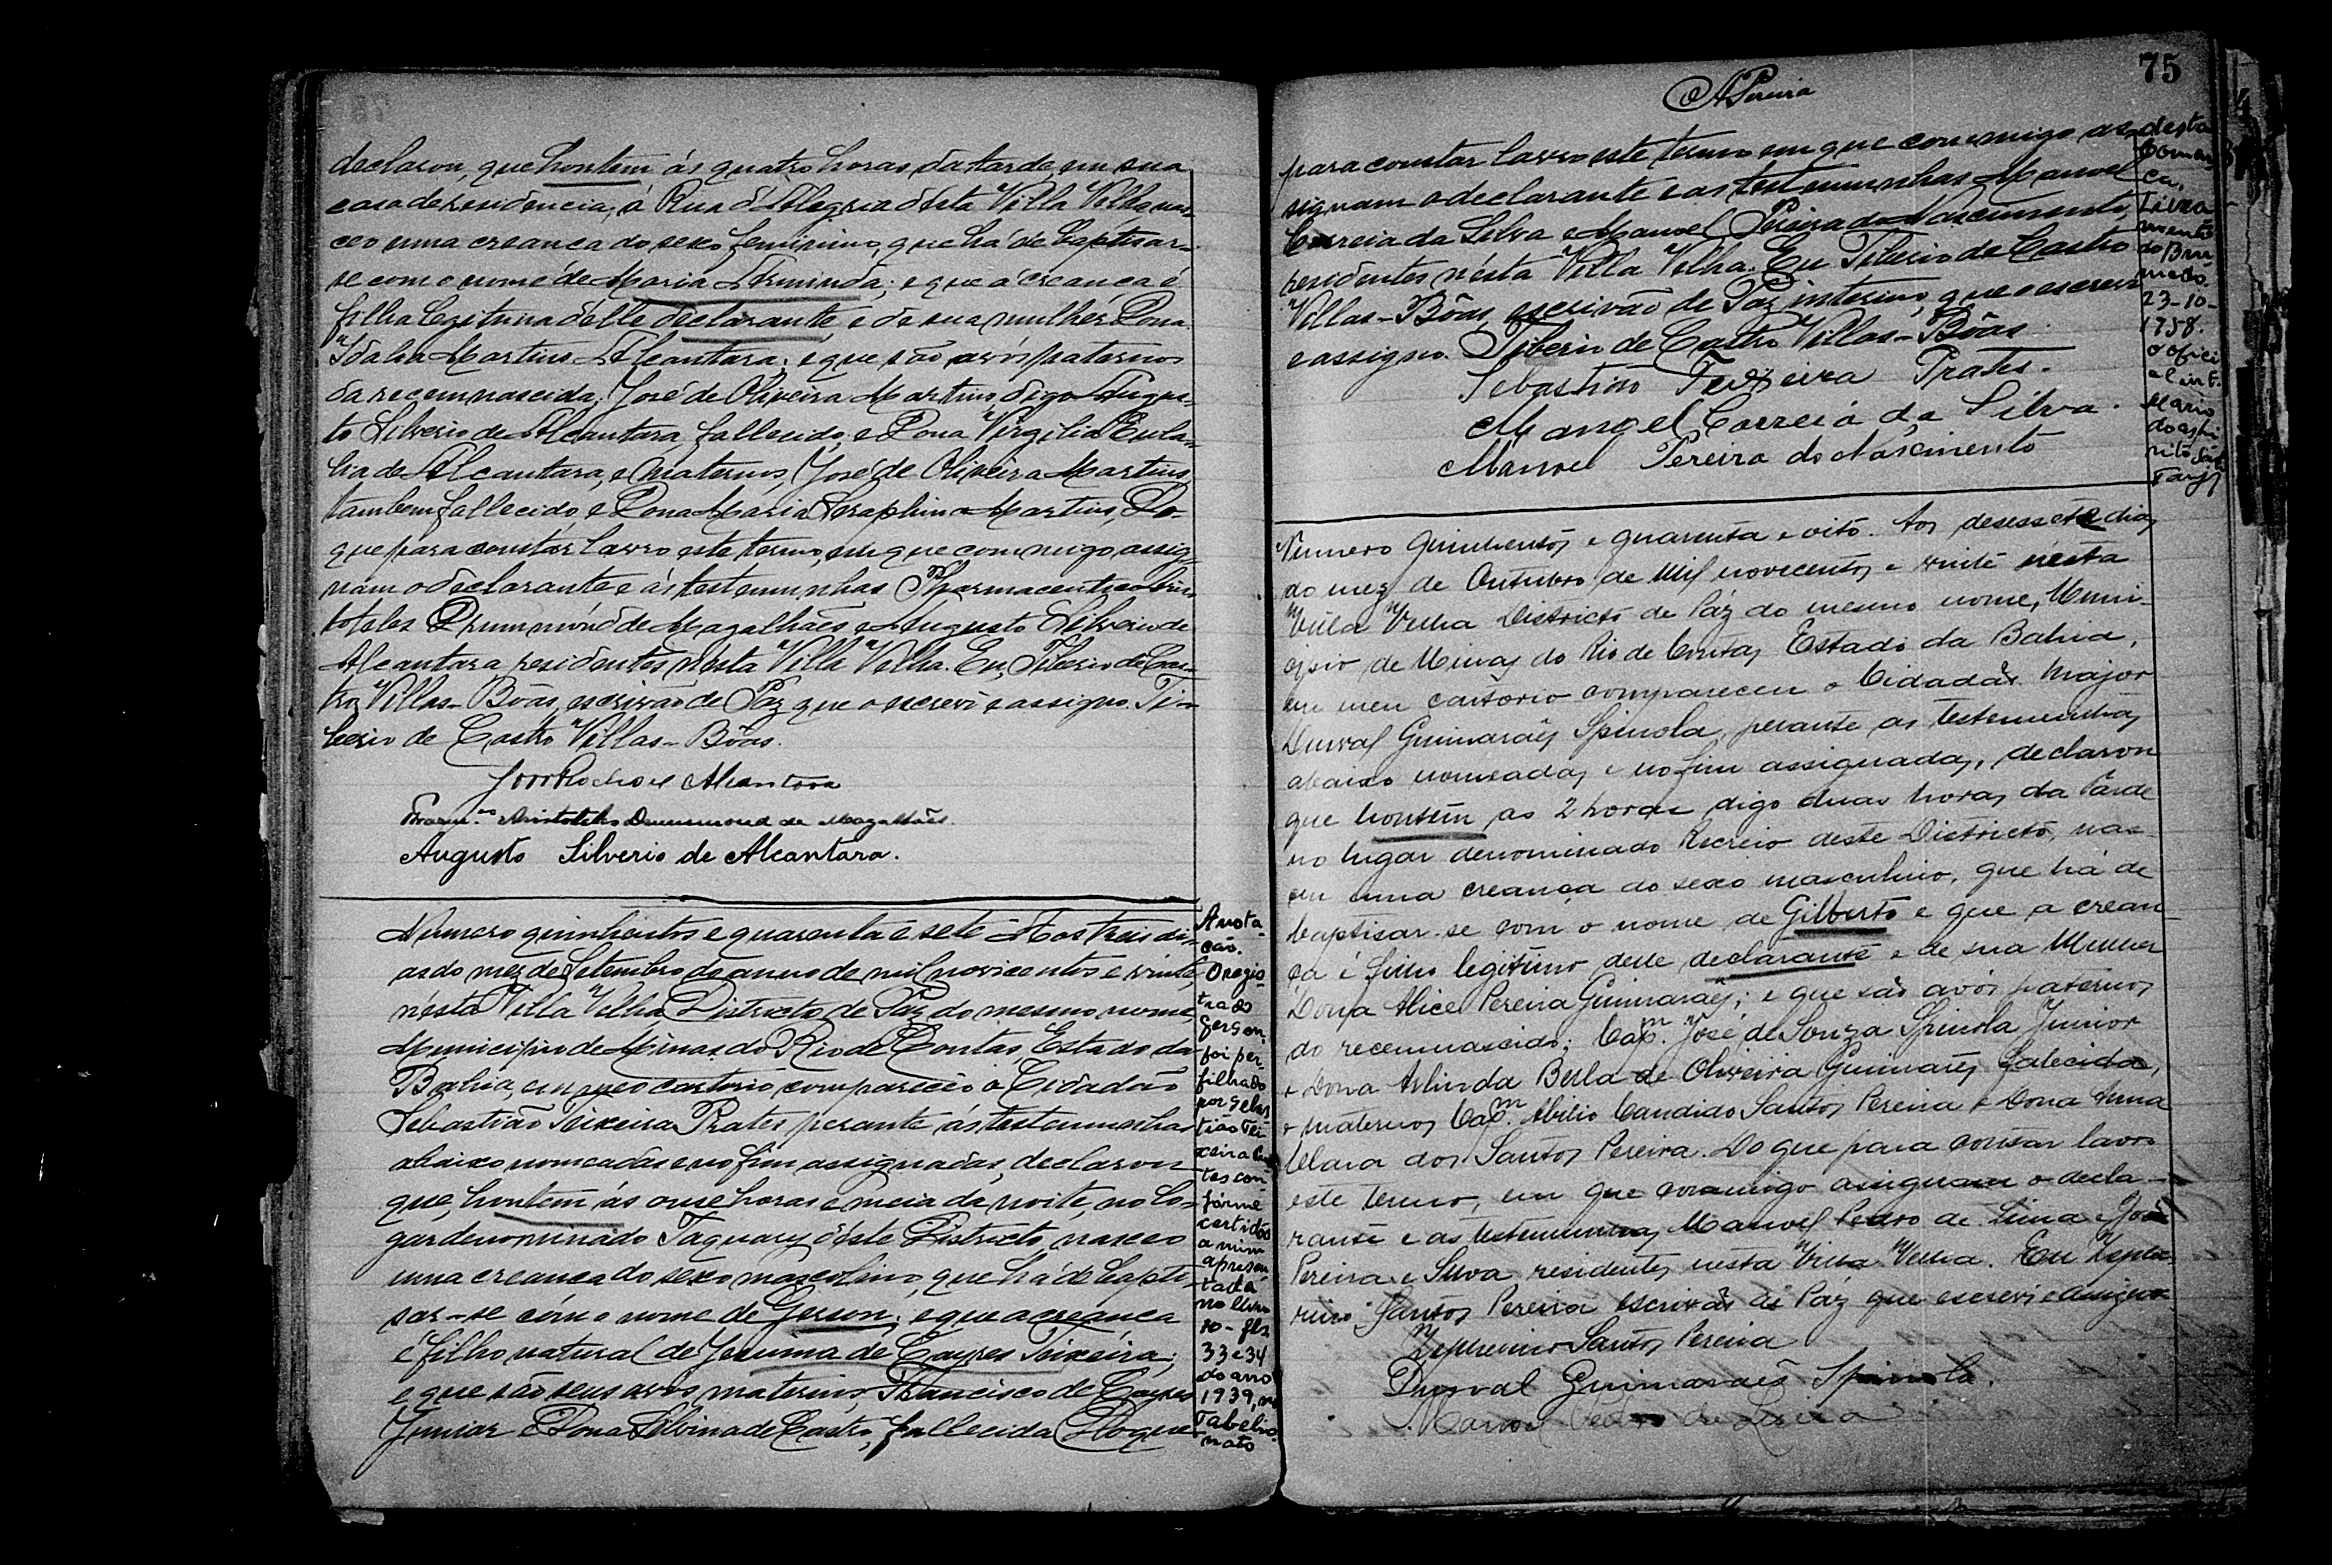 declarou, que hontem ás quatro horas da tarde, em sua
casa de residencia, á Rua d'Alegria désta Villa Velha nas-
ceo uma creança do sexo feminino, que há de baptisar-
se com o nome de Maria Arminda; e que a creança é
filha legitima d'elle declarante, e de sua mulher Dona
Idalia Martins Alcantara; e que são avós paternos
da recemnascida, José de Oliveira Martins digo Augus-
to Silverio de Alcantara, fallecido, e Dona Virgilia Eula-
lia de Alcantara, e maternos, José de Oliveira Martins,
tambem fallecido, e Dona Maria Seraphina Martins, Do
que para constar lavro este termo, em que commigo assig-
nam o declarante e ás testemunhas Pharmaceutico Aris-
toteles Drummónd de Magalhães e Augusto Silverio de
Alcantara, residentes, nésta Villa Velha. Eu, Tiberio de Cas-
tro Villas-Bôas, escrivão de Paz que o escrevi e assigno. Ti-
berio de Castro Villas-Bôas.
João Rocha de Alcantara
Pharm.co Aristoteles Drummond de Magalhães.
Augusto Silverio de Alcantara.
Número quinhentos e quarenta e sete Aos treis di-
as do mez de Setembro do anno de mil novicentos e vinte,
n'ésta Villa Velha Districto de Paz do mesmo nome,
Municipio de Minas do Rio de Contas Estado da
Bahia, em meo cartorio comparecêo o Cidadão
Sebastião Teixeira Prates perante ás testemunhas
abaixo nomeadas e no fim assignadas, declarou
que, hontem ás onse horas e meia da noite, no lo-
gar denominado Taquary d'éste Districto, nasceo
uma creança do sexo masculino, que há de bapti-
sar-se com o nome de Gerson; e que a creança
é filho natural de Jesuina de Cayres Teixeira;
e que são seus avós maternos, Francisco de Cayres
Junior e Dona Silvina de Castro, fallecida Do que
Anota-
ção.
O regis-
trado
Gerson,
foi per-
filhado
por Sebas-
tião Tei-
xeira Pra-
tes con-
fórme
certidão
a mim
apresen-
tada
no livro
10- fls
33 e 34
do ano
1939, no
Tabelio-
nato
75
A Pereira
para constar lavro este termo em que commigo as-
signam o declarante e as testemunhas Manoel
Correia da Silva e Manoel Pereira do Nascimento,
residentes n'ésta Villa Velha. Eu Tiberio de Castro
Villas-Bôas, escrivão de Paz interino, que o escrevi
e assigno. Tiberio de Castro Villas-Bôas
Sebastião Teixeira Prates.
Manoel Correia da Silva.
Manoel Pereira do Nascimento
desta
comar-
ca.
Livra-
mento
do Bru-
mado.
23-10-
1958.
O ofici-
al int.
Mario
do espi-
rito
Numero quinhentos e quarenta e oito. Aos desessete dias
do mez de Outubro de mil novecentos e vinte nésta
Villa Velha Districto de Páz do mesmo nome, Muni-
cipio de Minas do Rio de Contas Estado da Bahia,
em meu cartorio compareceu o Cidadão Major
Durval Guimarães Spinola, perante as testemunhas
abaixo nomeadas e no fim assignadas, declarou
que hontem as 2 horas digo duas horas da tarde
no lugar denominado Recreio deste Districto, nas-
ceu uma creança do sexo masculino, que há de
baptisar-se com o nome de Gilberto e que a crean-
ça é filho legitimo delle declarante e de sua Mulher
Dona Alice Pereira Guimarães; e que são avós paternos
do recemnascido; Capm. José de Souza Spinola Junior
e Dona Arlinda Bella de Oliveira Guimarães falecida,
e maternos Capm. Abilio Candido Santos Pereira e Dona Anna
Clara dos Santos Pereira. Do que para constar lavro
este termo, em que commigo assignam o decla-
rante e as testemunhas Manoel Pedro de Lima e José
Pereira e Silva, residentes nesta Villa Velha. Eu Zephe-
rino Santos Pereira escrivão de Páz que escrevi e assigno
Zepherino Santos Pereira
Durval Guimarães Spinola.
Manoel Pedro de Lima